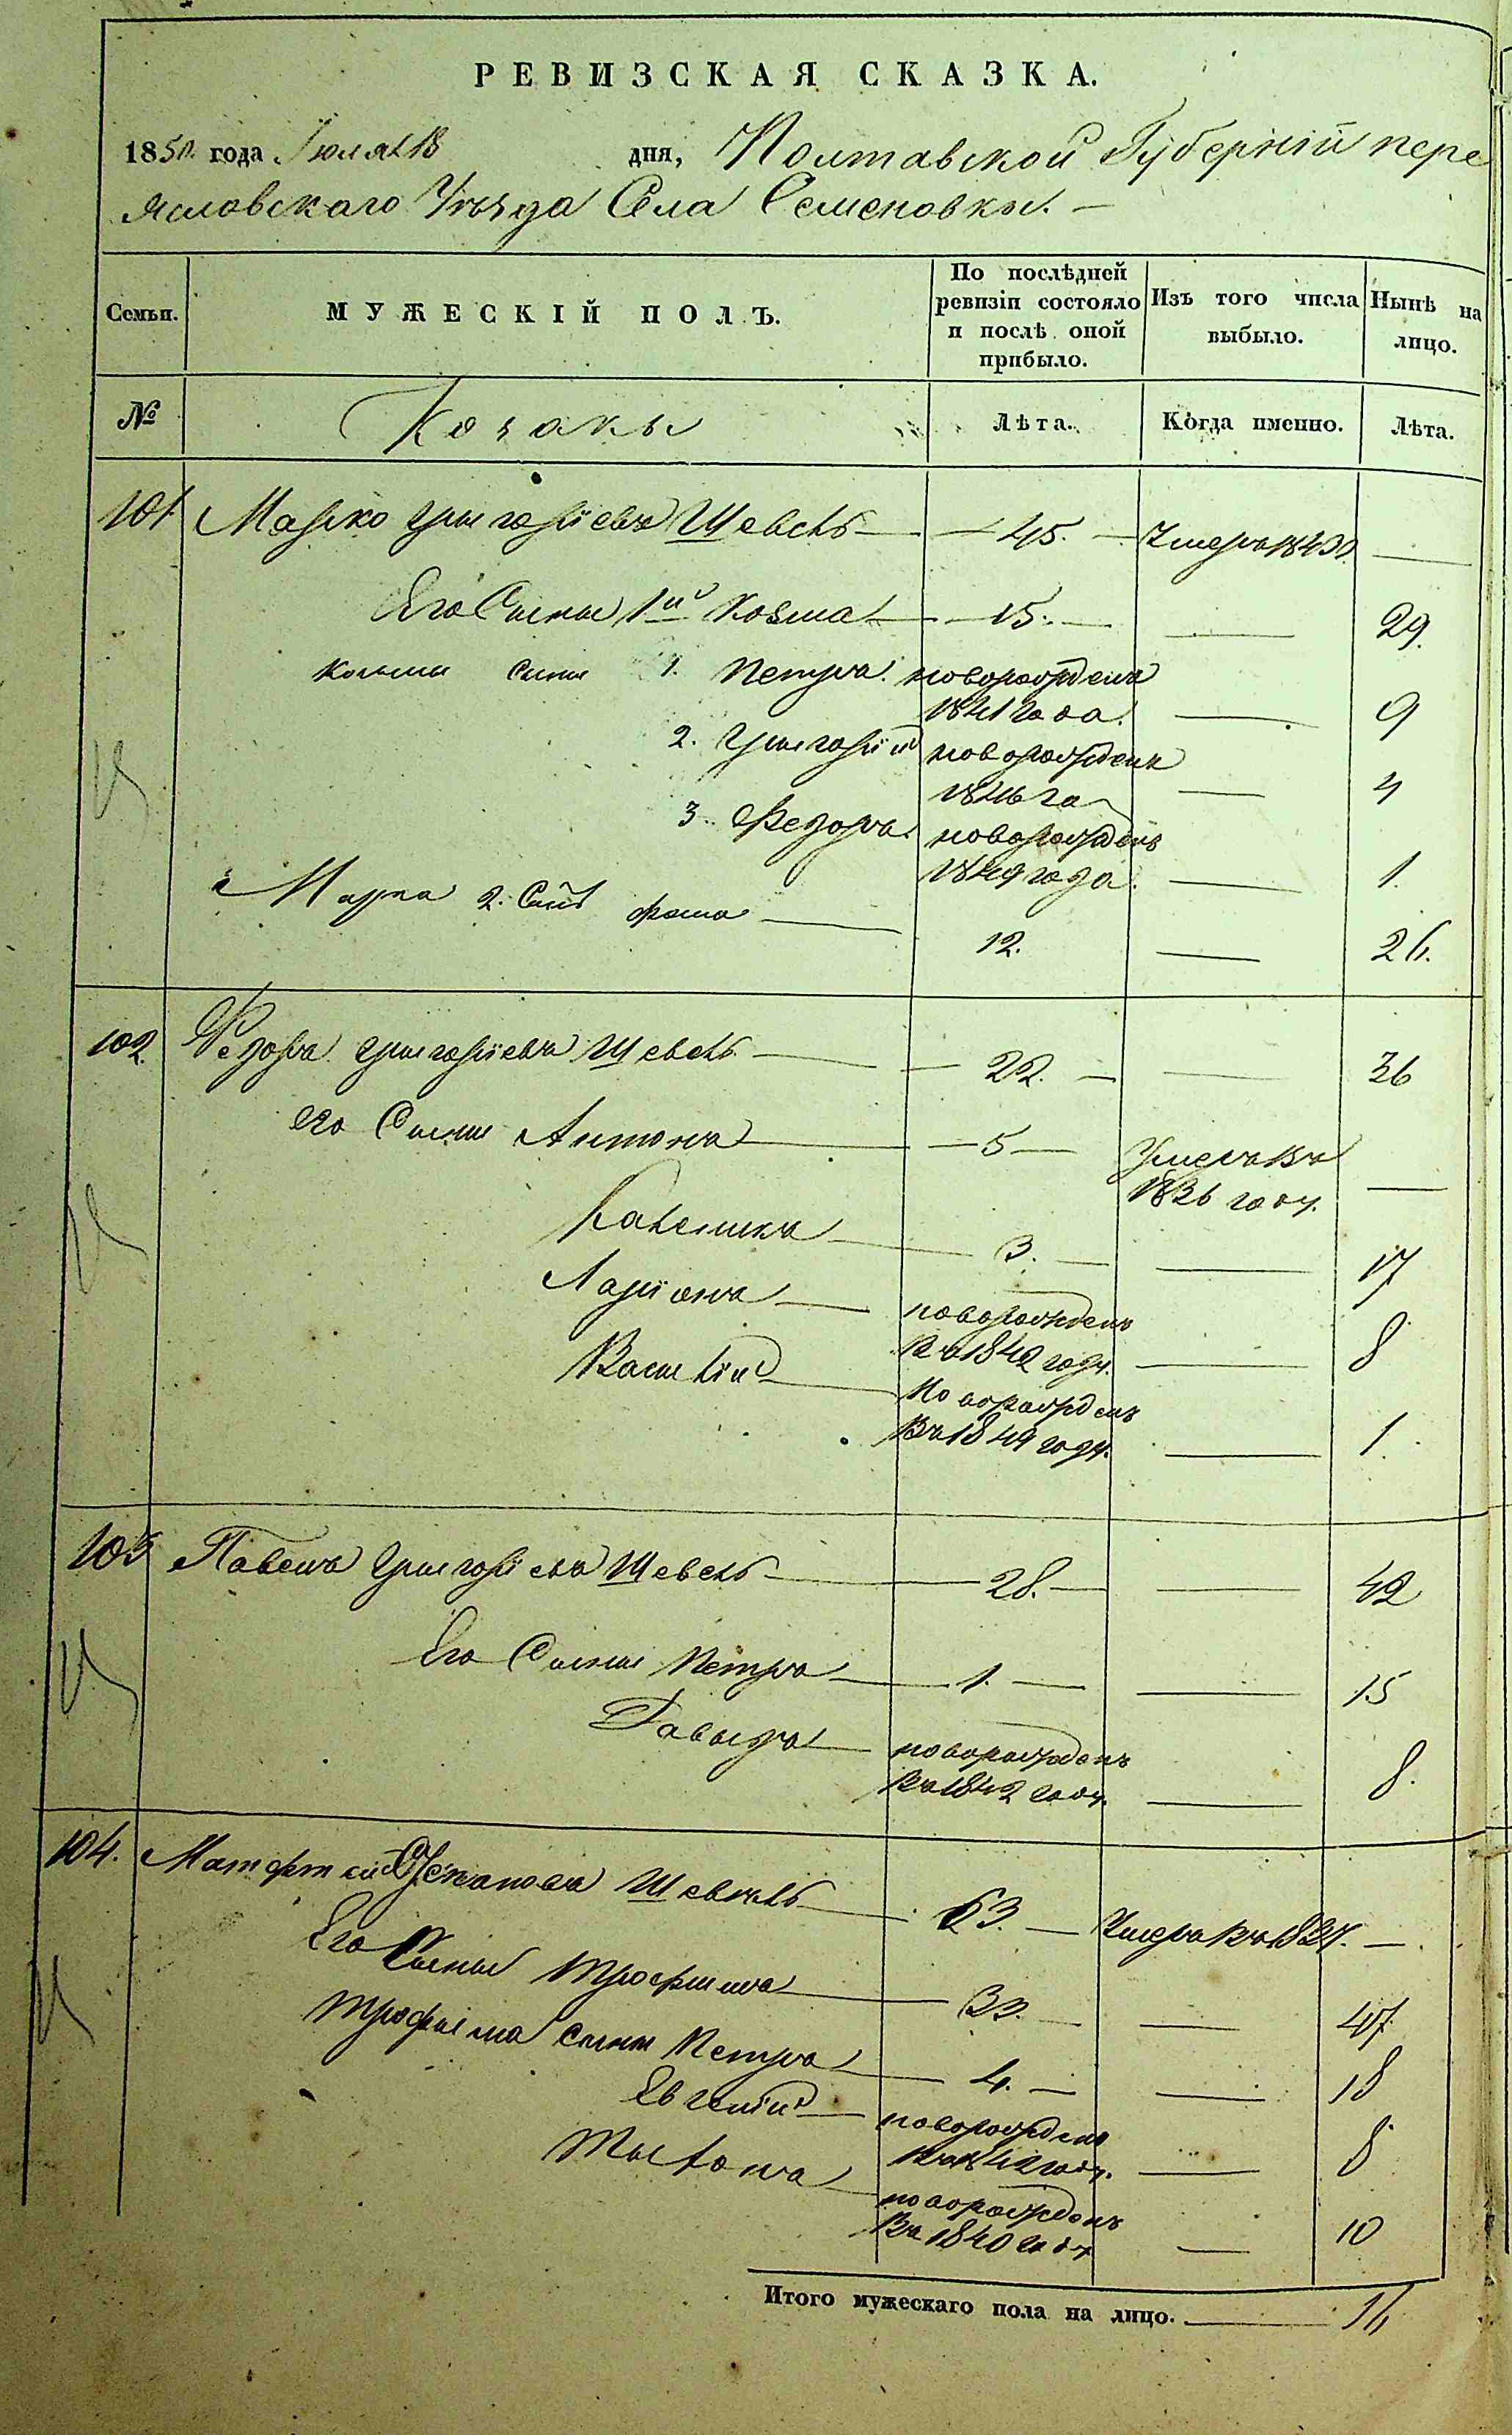 РЕВИЗСКАЯ СКАЗКА.
1850. года Іюля 18 дня, Полтавской Губерніи пере
яславскаго Уѣзда Села Семеновки. —
Семьи.
МУЖЕСКІЙ ПОЛЪ.
По послѣдней
ревизіи состояло
и послѣ оной
прибыло.
Изъ того числа
выбыло.
Нынѣ на
лицо.
№ Козаки Лѣта. Когда именно. Лѣта.
101. Марко Григоріевъ Шевель — 45. — Умеръ —
Его Сыны 1й Козма — 15. — — 29.
Козмы Сыны 1. Петръ новорожденъ
1841 года. — 9
2. Григорій новорожденъ
1846 го — 4
3. Федоръ новорожденъ
1849 года. — 1.
Марка 2. Сынъ Фома — 12. — 26.
102. Федоръ Григоріевъ Шевель — 22. — — 36
Его Сыны Антонъ — 5 — Умеръ въ
1836 году. —
— 3. — — 17
Ларіонъ — новорожденъ
Въ 1842 году. — 8
Василій — Новорожденъ
Въ 1849 году. — 1.
103 Павелъ Григоріевъ Шевель — 28. — — 42
Его Сыны Петръ — 1. — — 15
Давыдъ — новорожденъ
Въ 1842 году. — 8.
104. Шевель — 63. — Умеръ Въ 1837. —
Его Сынъ Трофимъ — 33. — — 47.
Трофима Сыны Петръ — 4. — — 18
Евгеній — новорожденъ
Въ 1842 году. — 8
новорожденъ
Въ 1840 году — 10
Итого мужескаго пола на лицо. — 16